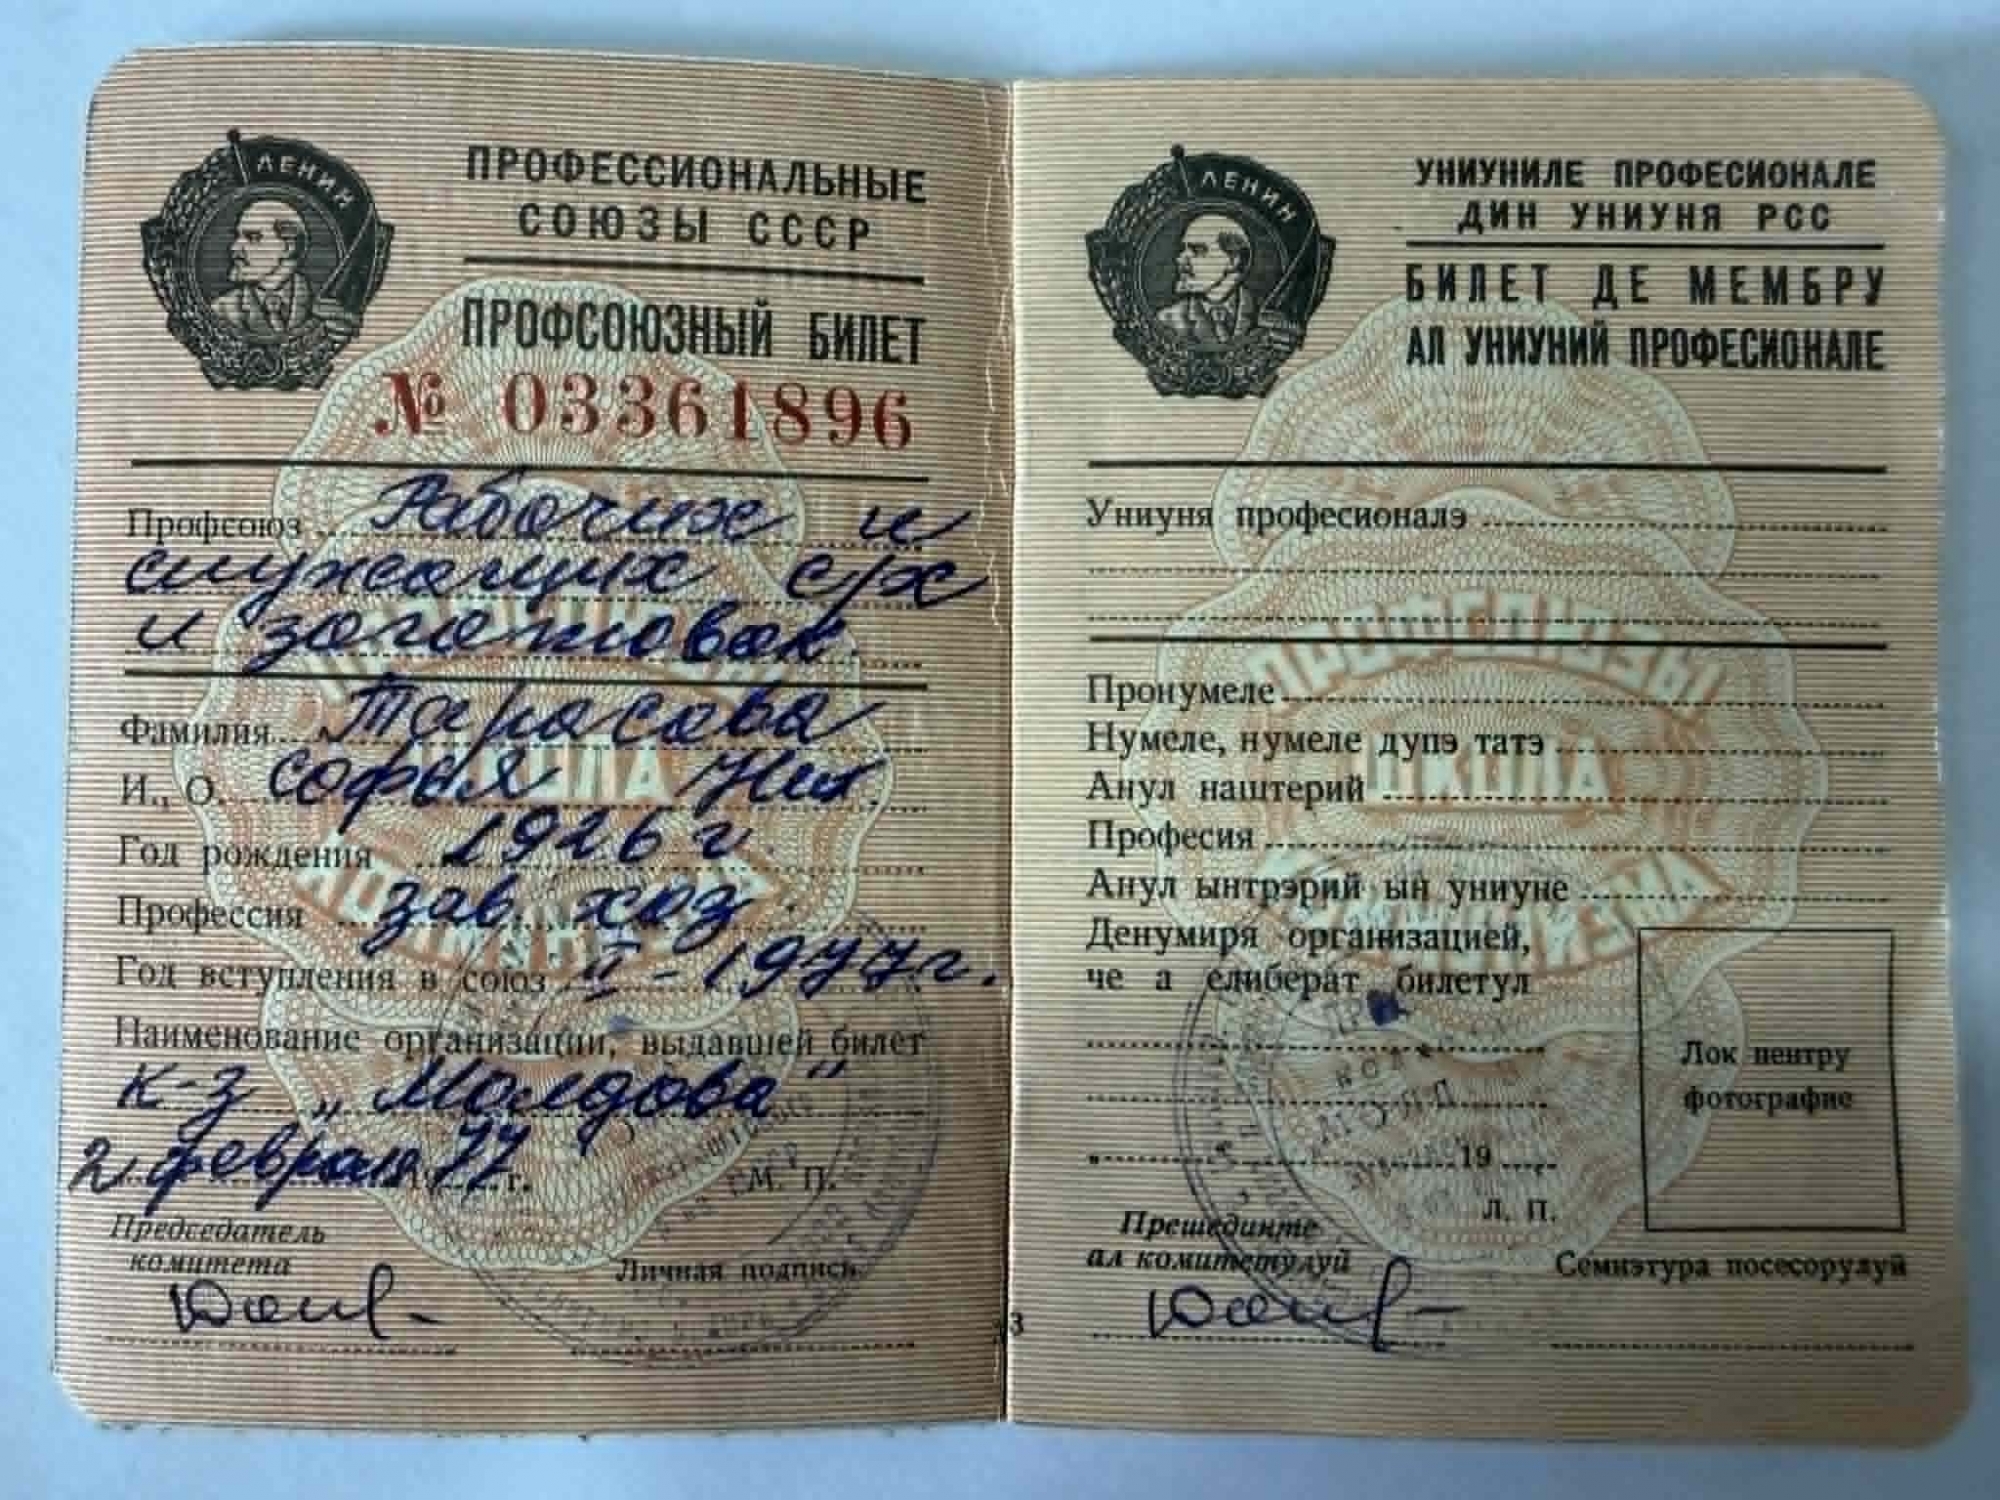 ЛЕНИН
ПРОФЕССИОНАЛЬНЫЕ
СОЮЗЫ СССР
ПРОФСОЮЗНЫЙ БИЛЕТ
№ 03361896
Профсоюз Рабочих и
служащих с/х
и заготовок
Фамилия Тарасова
И., О. Софья Ник.
Год рождения 1926 г.
Профессия зав. хоз.
Год вступления в союз II - 1977г.
Наименование организации, выдавшей билет
к-з „Молдова"
2 февраля 1977 г.
М. П.
Председатель
комитета
Личная подпись
ЛЕНИН
УНИУНИЛЕ ПРОФЕСИОНАЛЕ
ДИН УНИУНЯ РСС
БИЛЕТ ДЕ МЕМБРУ
АЛ УНИУНИЙ ПРОФЕСИОНАЛЕ
Униуня професионалэ
Пронумеле
Нумеле, нумеле дупэ татэ
Анул наштерий
Професия
Анул ынтрэрий ын униуне
Денумиря организацией,
че а елиберат билетул
Лок пентру
фотографие
19
Л. П.
Прешединте
ал комитетулуй
Семнэтура посесорулуй
3
ПРОФСОЮЗЫ
ШКОЛА
КОММУНИЗМА